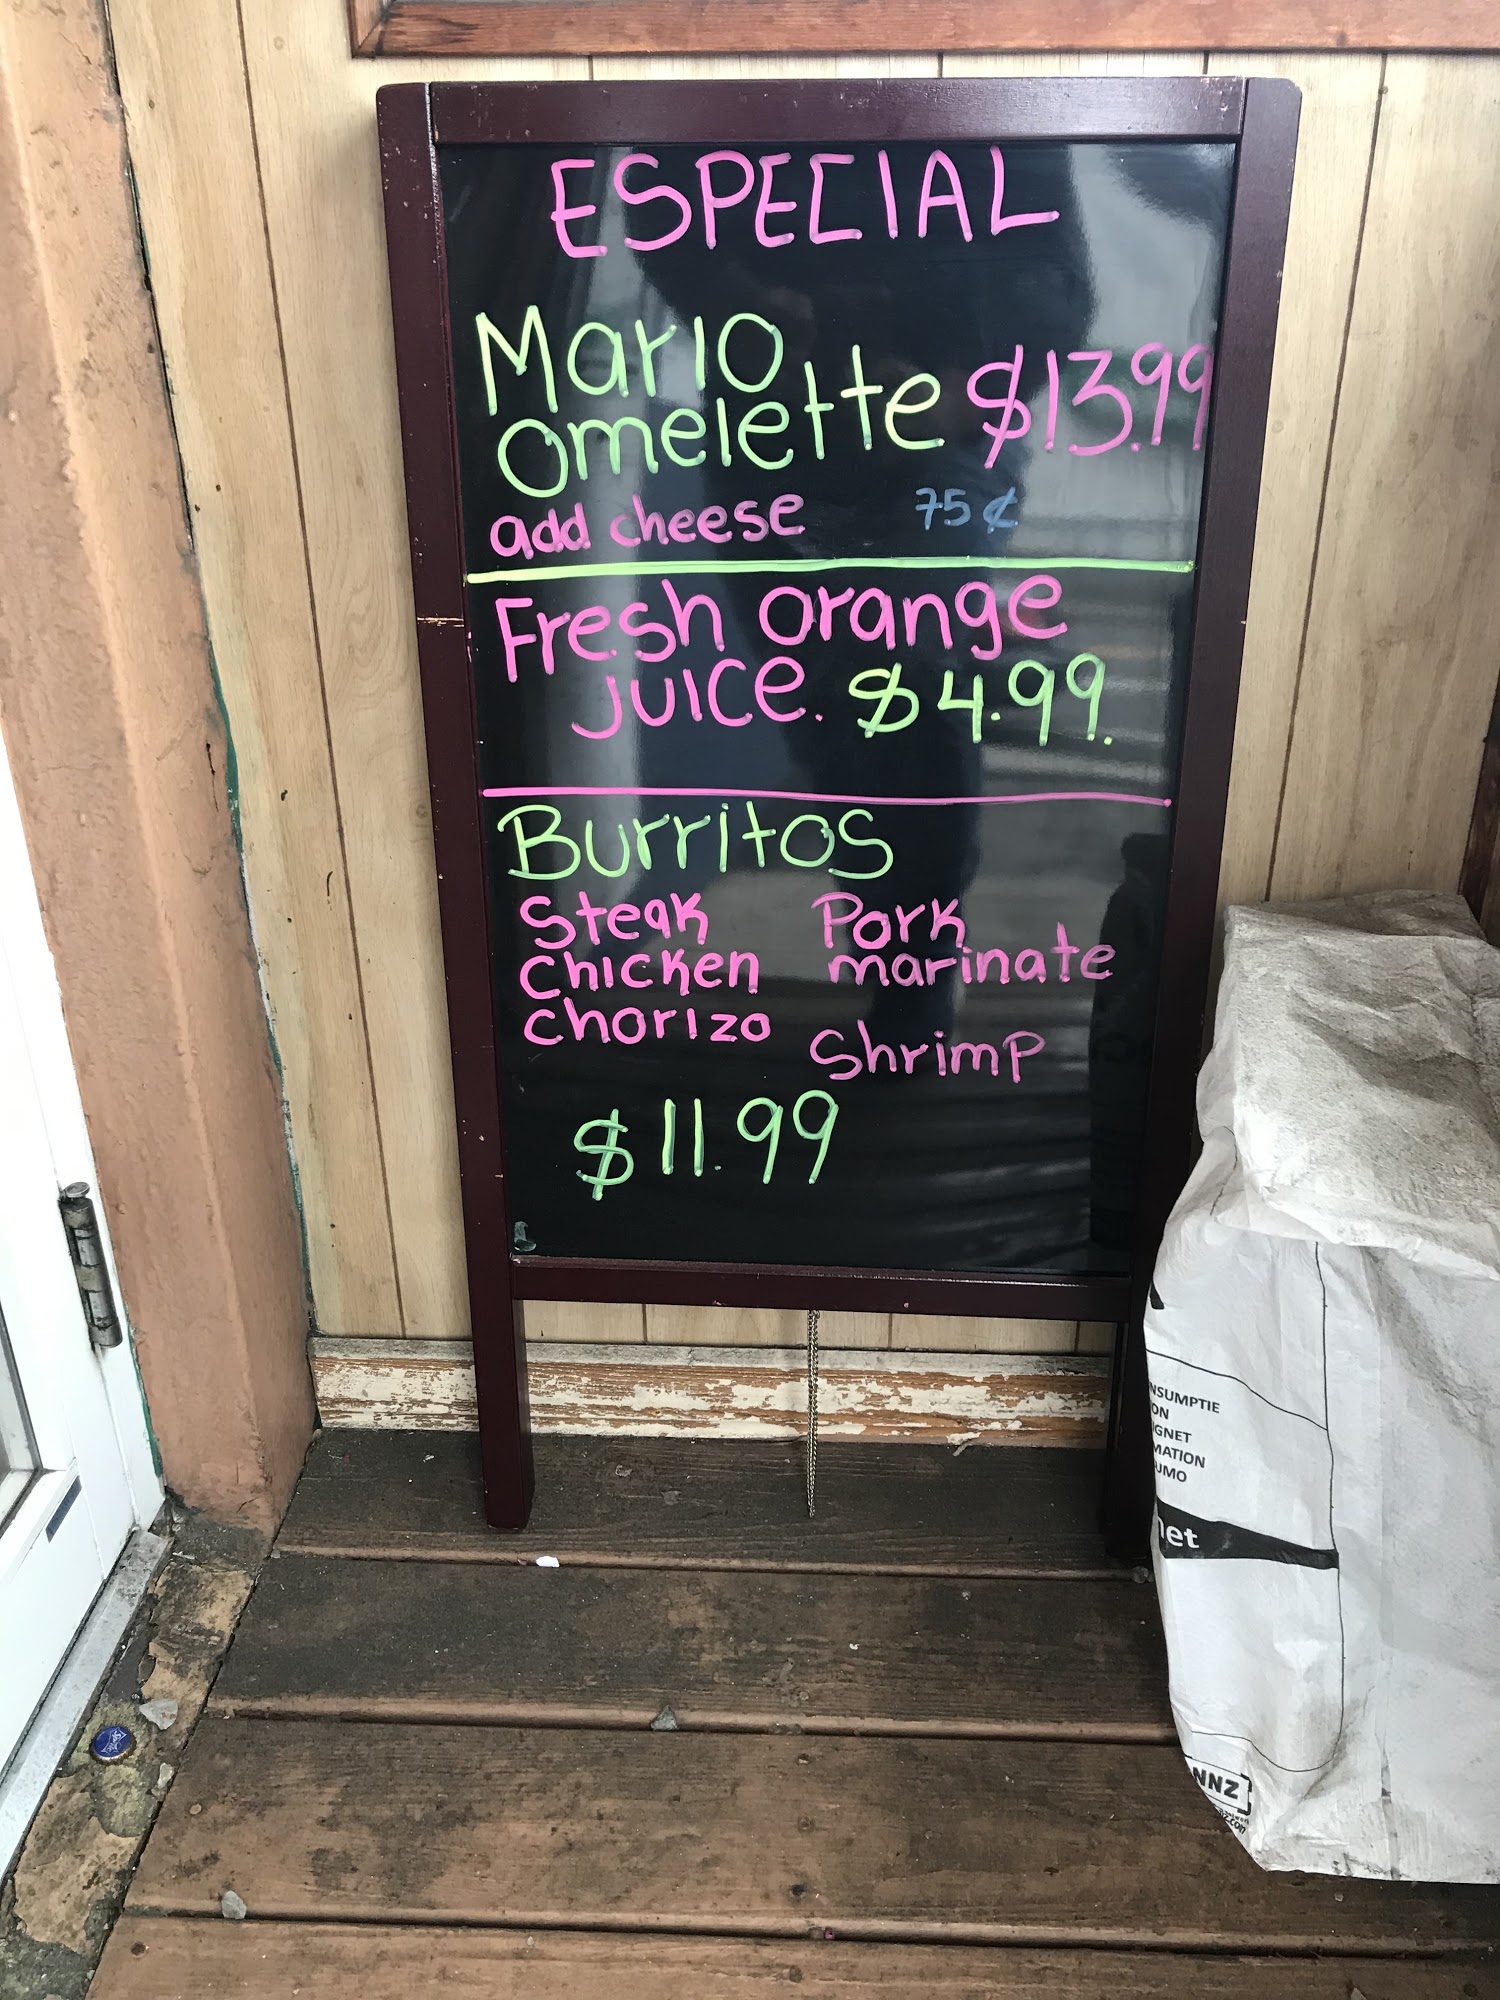 ESPECIAL
Mario
omelette $13.99
add cheese 75¢
Fresh orange
juice. $4.99.
Burritos
Steak Pork
chicken marinate
chorizo
Shrimp
$11.99
NSUMPTIE
ON
IGNET
MATION
UMO
net
NNZ